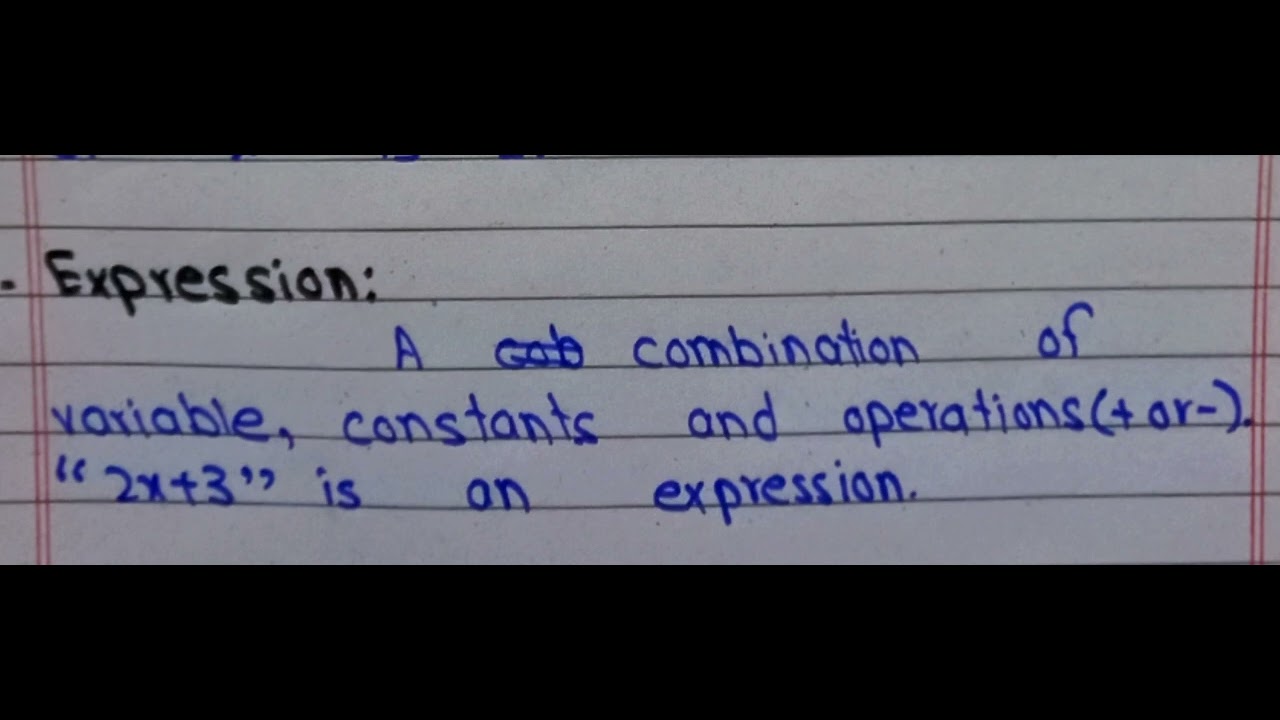 Expression:
A combination of
variable, constants and operations(+ or -).
"2x+3" is an expression.